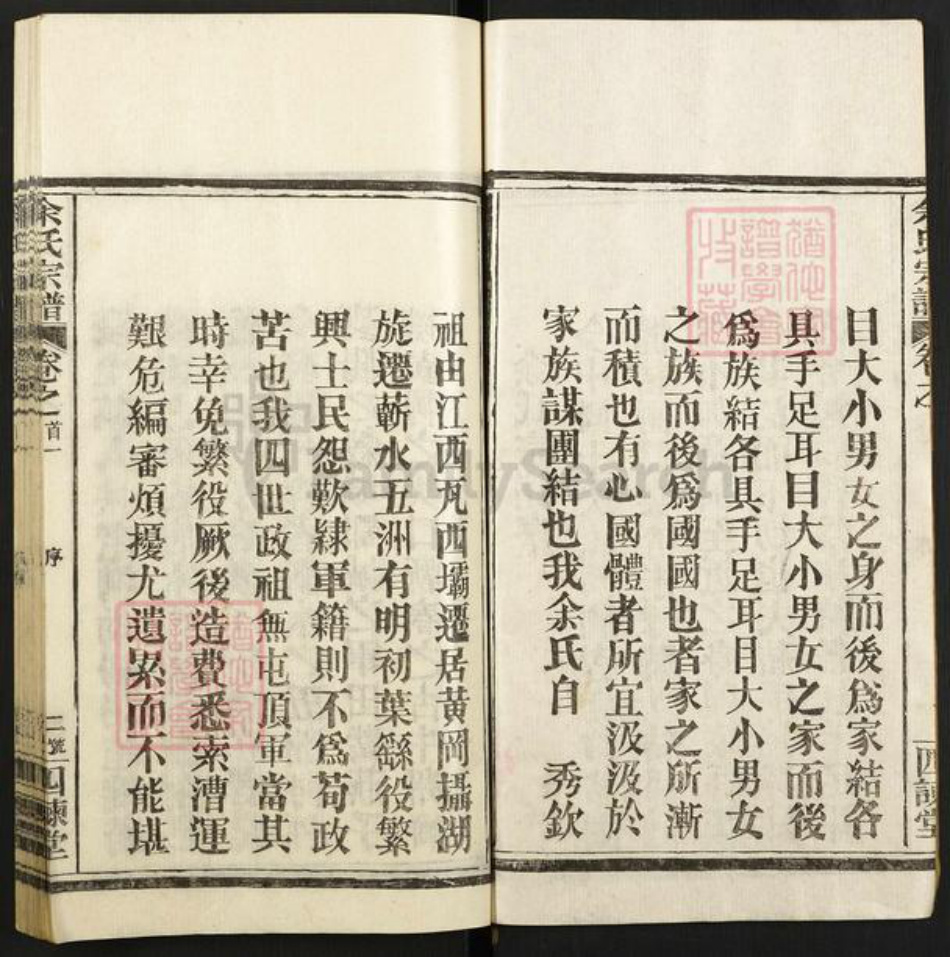 目大小男女之身而後爲家結各
具手足耳目大小男女之家而後
爲族結各具手足耳目大小男女
之族而後爲國國也者家之所漸
而積也有心國體者所宜汲汲於
家族謀團結也我余氏自 秀欽
祖由江西瓦西壩遷居黃岡攝湖
旋遷蘄水五洲有明初葉繇役繁
興士民怨歎隸軍籍則不爲苟政
苦也我四世政祖無屯頂軍當其
時幸免繁役厥後造費悉索漕運
艱危編審煩擾尤遺累而不能堪
余氏宗譜
卷之首一
序
二號
四諫堂
FamilySearch